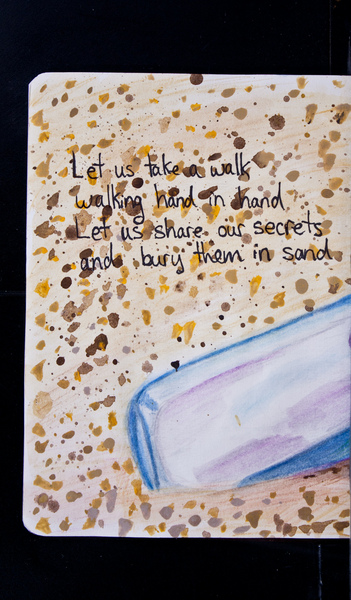 Let us take a walk
walking hand in hand
Let us share our secrets
and bury them in sand